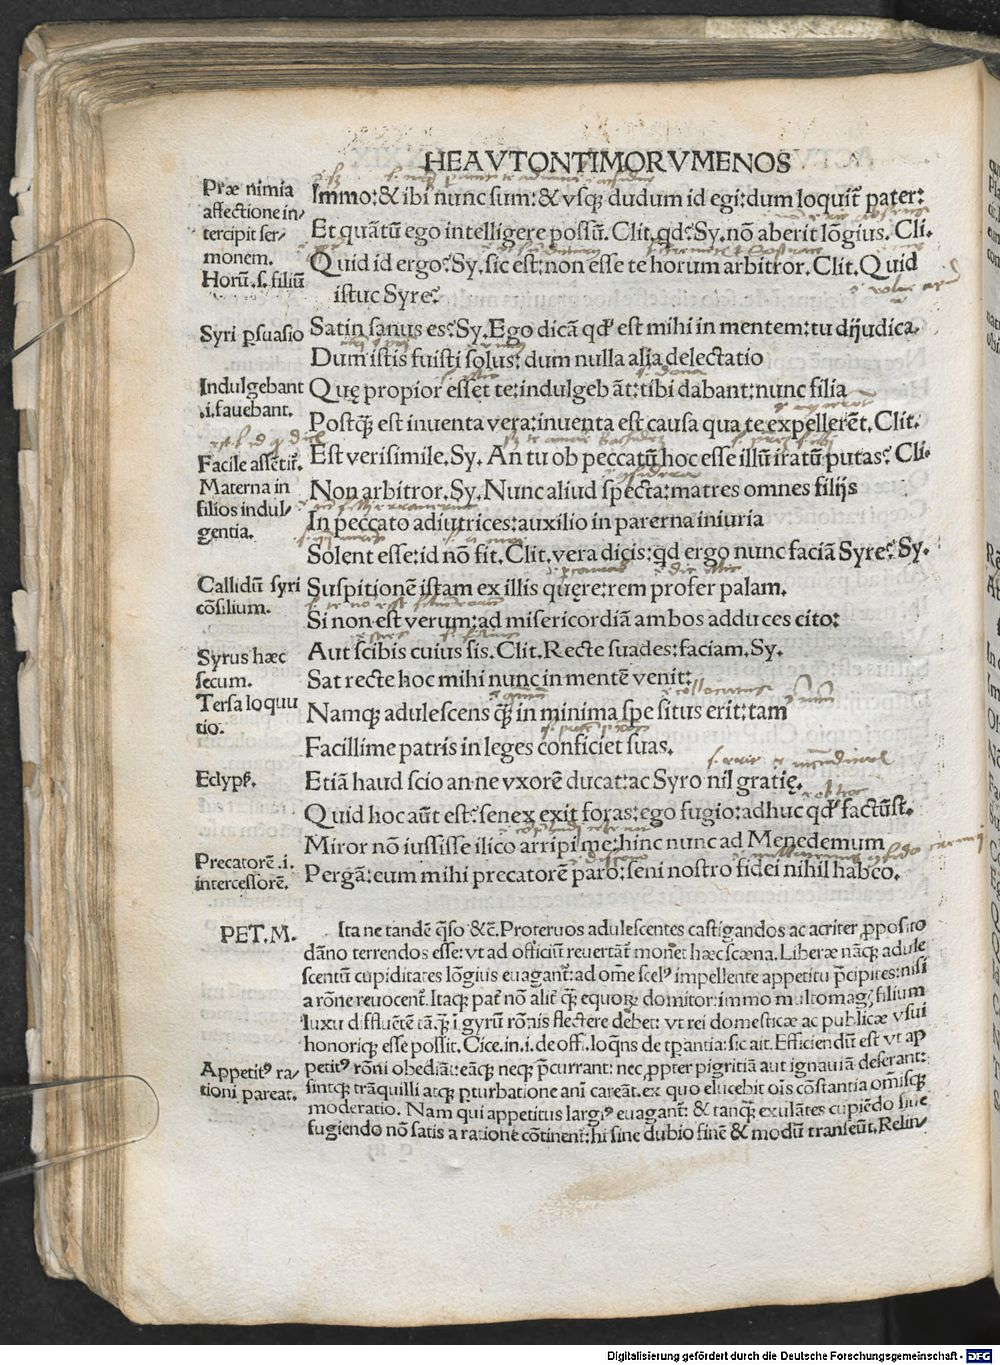 HEAVTONTIMORVMENOS
Præ nimia
affectione in/
tercipit ser/
monem.
Horũ.s.filiũ
Syri ꝑsuasio
Indulgebant
.i.fauebant.
Facile assẽtit̃.
Materna in
filios indul/
gentia.
Callidũ syri
cõsilium.
Syrus hæc
secum.
Tersa loquu
tio.
Eclyps̃.
Precatorẽ.i.
intercessorẽ.
Immo:& ibi nunc sum:& vsq; dudum id egi:dum loquit̃ pater:
Et quãtũ ego intelligere possũ. Clit. qd? Sy. nõ aberit lõgius. Cli.
Quid id ergo? Sy. sic est: non esse te horum arbitror. Clit. Quid
istuc Syre?
Satin sanus es? Sy. Ego dicã qđ est mihi in mentem: tu dijudica.
Dum istis fuisti solus: dum nulla alia delectatio
Quę propior esset te: indulgebãt: tibi dabant: nunc filia
Postq̃ est inuenta vera: inuenta est causa qua te expellerẽt. Clit.
Est verisimile. Sy. An tu ob peccatũ hoc esse illũ iratũ putas? Cli.
Non arbitror. Sy. Nunc aliud specta: matres omnes filijs
In peccato adiutrices: auxilio in paterna iniuria
Solent esse: id nõ fit. Clit. vera dicis: qd ergo nunc faciã Syre? Sy.
Suspitionẽ istam ex illis quęre: rem profer palam.
Si non est verum: ad misericordiã ambos adduces cito:
Aut scibis cuius sis. Clit. Recte suades: faciam. Sy.
Sat recte hoc mihi nunc in mentẽ venit:
Namq; adulescens q̃ in minima spe situs erit: tam
Facillime patris in leges conficiet suas.
Etiã haud scio anne vxorẽ ducat: ac Syro nil gratię.
Quid hoc aũt est? senex exit foras: ego fugio: adhuc qđ factũst.
Miror nõ iussisse ilico arripi me: hinc nunc ad Menedemum
Pergã: eum mihi precatorẽ paro: seni nostro fidei nihil habeo.
PET. M.
Ita ne tandẽ q̃so &c̃. Proteruos adulescentes castigandos ac acriter ꝓposito
dãno terrendos esse: vt ad officiũ reuertat̃ monet hæc scæna. Liberæ nãq; adule
scentũ cupiditates lõgius euagant̃: ad om̃e scelꝰ impellente appetitu p̃cipites: nisi
a rõne reuocent̃. Itaq; pat̃ nõ alit̃ q̃ equoꝝ domitor: immo multomagꝭ filium
luxu diffluẽtẽ tã.q̃ ĩ gyrũ rõnis flectere debet: vt rei domesticæ ac publicæ vsui
honoriq; esse possit. Cice. in.i. de off. loq̃ns de tꝑantia: sic ait. Efficiendũ est vt ap
petitꝰ rõni obediãt: eãq; neq; p̃currant: nec ꝓpter pigritiã aut ignauiã deserant:
sintq; trãquilli atq; ꝑturbatione ani careãt. ex quo elucebit oĩs cõstantia om̃isq;
moderatio. Nam qui appetitus largiꝰ euagant̃: & tanq̃ exulãtes cupiẽdo siue
fugiendo nõ satis a ratione cõtinent̃: hi sine dubio finẽ & modũ transeũt. Relin/
Appetitꝰ ra/
tioni pareat.
Digitalisierung gefördert durch die Deutsche Forschungsgemeinschaft - DFG